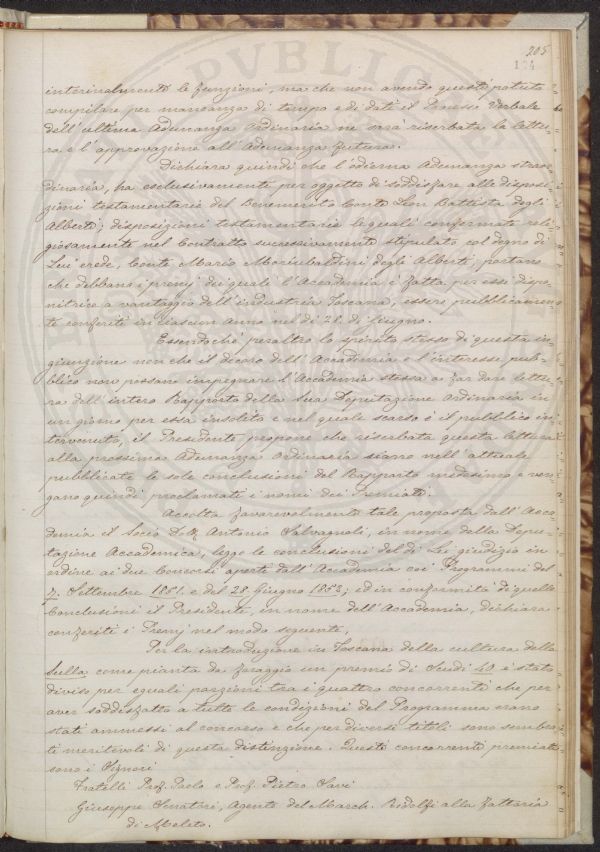 205
174
interinalmente le funzioni, ma che non avendo questi potuto
compilare per mancanza di tempo e di dati il Processo Verbale
dell'ultima Adunanza Ordinaria ne sarà riserbata la lettu=
ra e l'approvazione all'Adunanza futura.
Dichiara quindi che l'odierna Adunanza straor=
dinaria, ha esclusivamente per oggetto di soddisfare alle disposi=
zioni testamentarie del Benemerito Conte Leon Battista degli
Alberti; disposizioni testamentarie le quali confermate reli=
giosamente nel Contratto successivamente stipulato col degno di
Lui erede, Conte Mario Moriubaldini degli Alberti, portano
che debbano i premj dei quali l'Accademia è fatta per esse dispe=
nsitrice a vantaggio dell'industria Toscana, essere pubblicamen=
te conferiti in ciascun anno nel dì 28. di Giugno.
Essendochè peraltro lo spirito stesso di questa in=
giunzione non che il decoro dell'Accademia e l'interesse pub=
blico non possono impegnare l'Accademia stessa a far dare lettu=
ra dell'intero Rapporto della sua Deputazione Ordinaria in
un giorno per essa insolito e nel quale scarso è il pubblico in=
tervenuto, il Presidente propone che riserbata questa lettura
alla prossima Adunanza Ordinaria siano nell'attuale
pubblicate le sole conclusioni del Rapporto medesimo e ven=
gano quindi proclamati i nomi dei Premiati.
Accolta favorevolmente tale proposta dall'Acca=
demia il Socio D.r Antonio Salvagnoli, in nome della Depu=
tazione Accademica, legge le conclusioni del di Lei giudizio in
ordine ai due Concorsi aperti dall'Accademia coi Programmi del
7. Settembre 1851. e del 28. Giugno 1852; ed in conformità di quelle
Conclusioni il Presidente, in nome dell'Accademia, dichiara
conferiti i Premj nel modo seguente.
Per la introduzione in Toscana della cultura della
Sulla come pianta da foraggio un premio di Scudi 40 è stato
diviso per eguali porzioni tra i quattro concorrenti che per
aver soddisfatto a tutte le condizioni del Programma erano
stati ammessi al concorso e che per diversi titoli sono sembra=
ti meritevoli di questa distinzione. Questi concorrenti premiati
sono i Signori
Fratelli Prof. Paolo e Prof. Pietro Savi
Giuseppe Senatori, Agente del March. Ridolfi alla Fattoria
di Meleto.